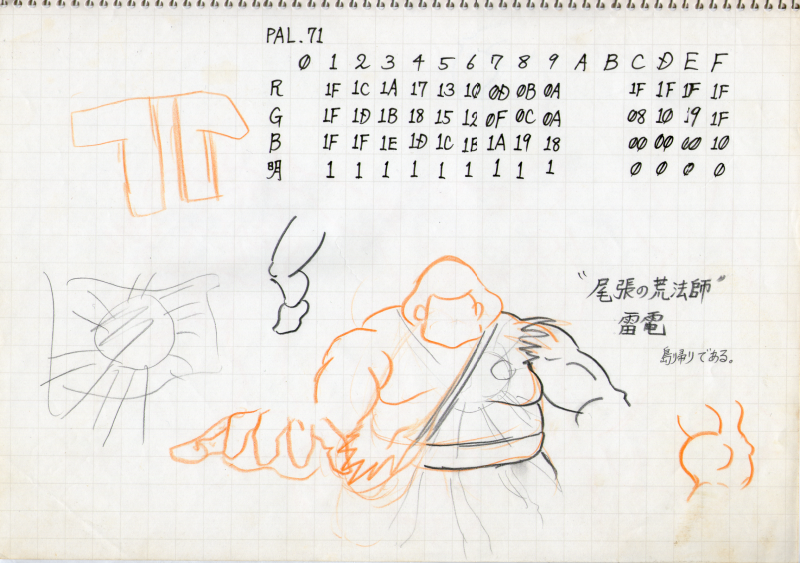 PAL.71
0 1 2 3 4 5 6 7 8 9 A B C D E F
R 1F 1C 1A 17 13 10 0D 0B 0A 1F 1F 1F 1F
G 1F 1D 1B 18 15 12 0F 0C 0A 08 10 19 1F
B 1F 1F 1E 1D 1C 1B 1A 19 18 00 00 00 10
明 1 1 1 1 1 1 1 1 1 0 0 0 0
"尾張の荒法師"
雷電
島帰りである。